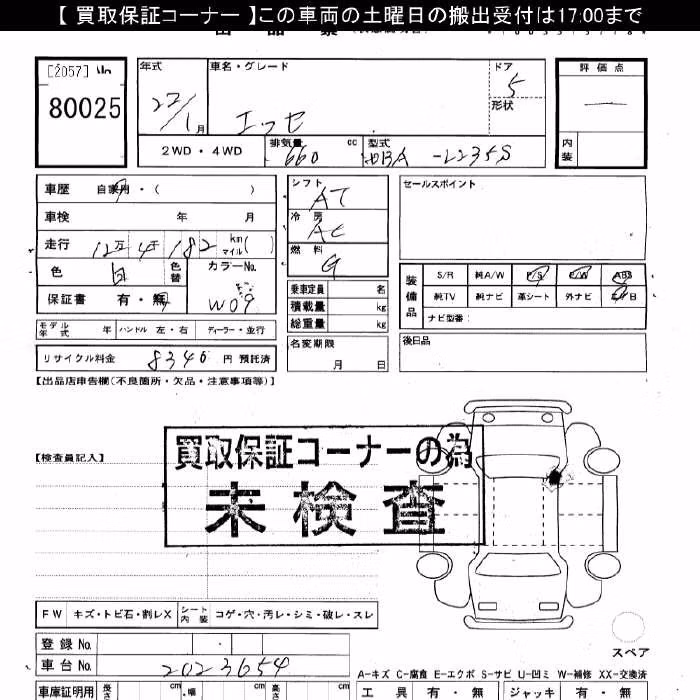 【 買取保証コーナー 】この車両の土曜日の搬出受付は17:00まで
[2057]
80025
年式
22/1月
車名・グレード
エッセ
ドア
5
形状
評価点
内装
2WD・4WD
排気量
660 cc
型式
DBA-L235S
車歴 自家用・( )
車検 年 月
走行 12万4千182 km マイル( )
色 白 色替
カラーNo.
W09
保証書 有・無
モデル年式 年 ハンドル 左・右 ディーラー・並行
リサイクル料金 8340 円 預託済
シフト
AT
冷房
AC
燃料
G
乗車定員 名
積載量 kg
総重量 kg
名変期限
月 日
セールスポイント
装備品
S/R 純A/W P/S P/W ABS
純TV 純ナビ 革シート 外ナビ エアB
ナビ型番:
後日品
【出品店申告欄(不良箇所・欠品・注意事項等)】
【検査員記入】
買取保証コーナーの為
未検査
FW キズ・トビ石・割レX シート内装 コゲ・穴・汚レ・シミ・破レ・スレ
登録 No.
車台 No. 2023654
スペア
A-キズ C-腐食 E-エクボ S-サビ U-凹ミ W-補修 XX-交換済
車庫証明用 長さ cm 幅 cm 高さ cm
工具 有・無 ジャッキ 有・無